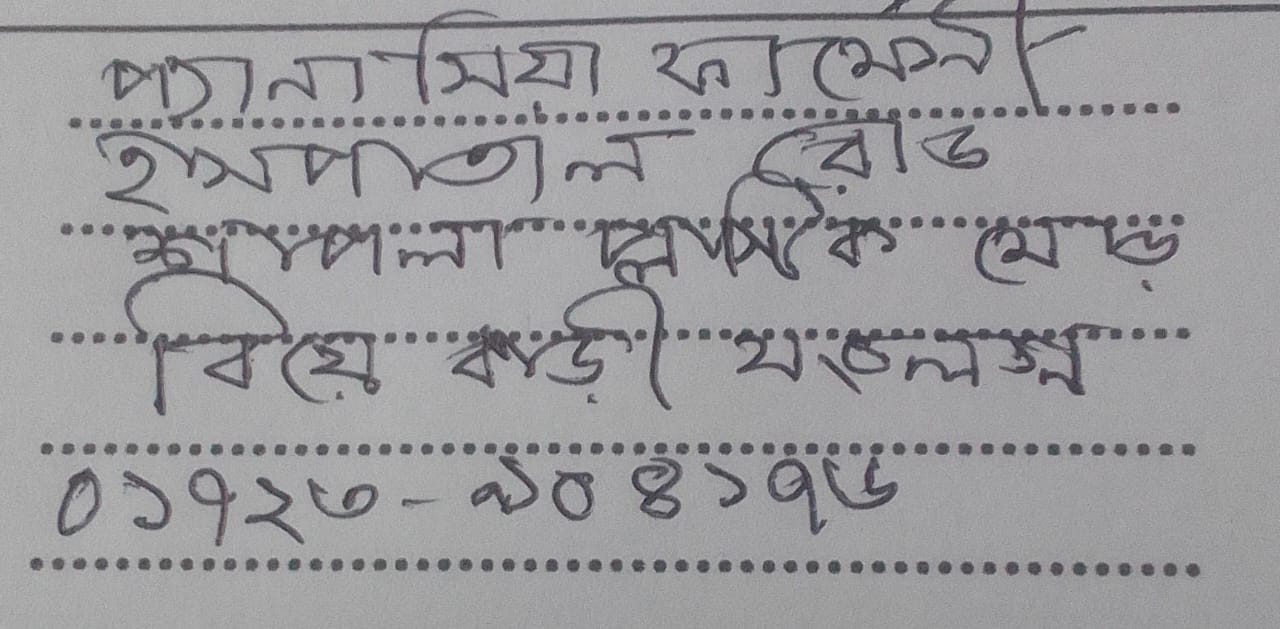 প্যানাসিয়া ফার্মেসী
হাসপাতাল রোড
শাপলা প্লাস্টিক মোড়
বিয়ে বাড়ী
০১৭২৩-৯০৪১৭৬